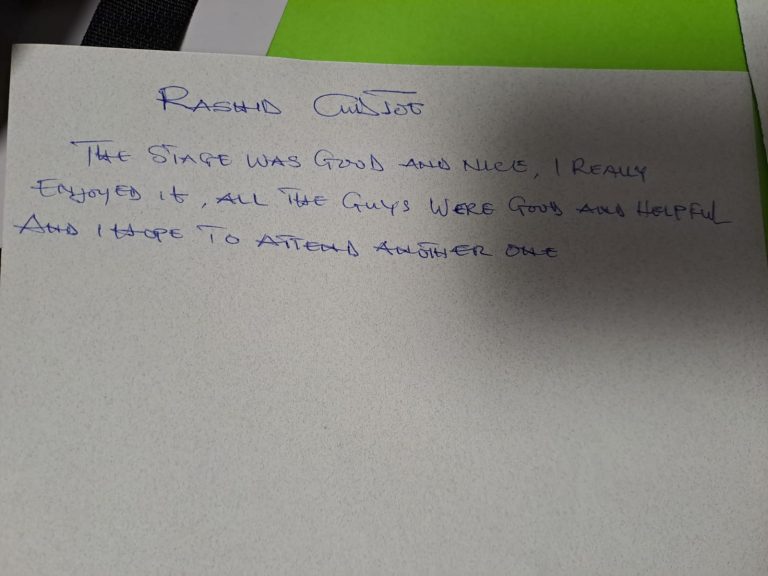 RASHID CUDJOE
THE STAGE WAS GOOD AND NICE, I REALLY
ENJOYED it, ALL THE GUYS WERE GOOD AND HELPFUL
AND I HOPE TO ATTEND ANOTHER ONE